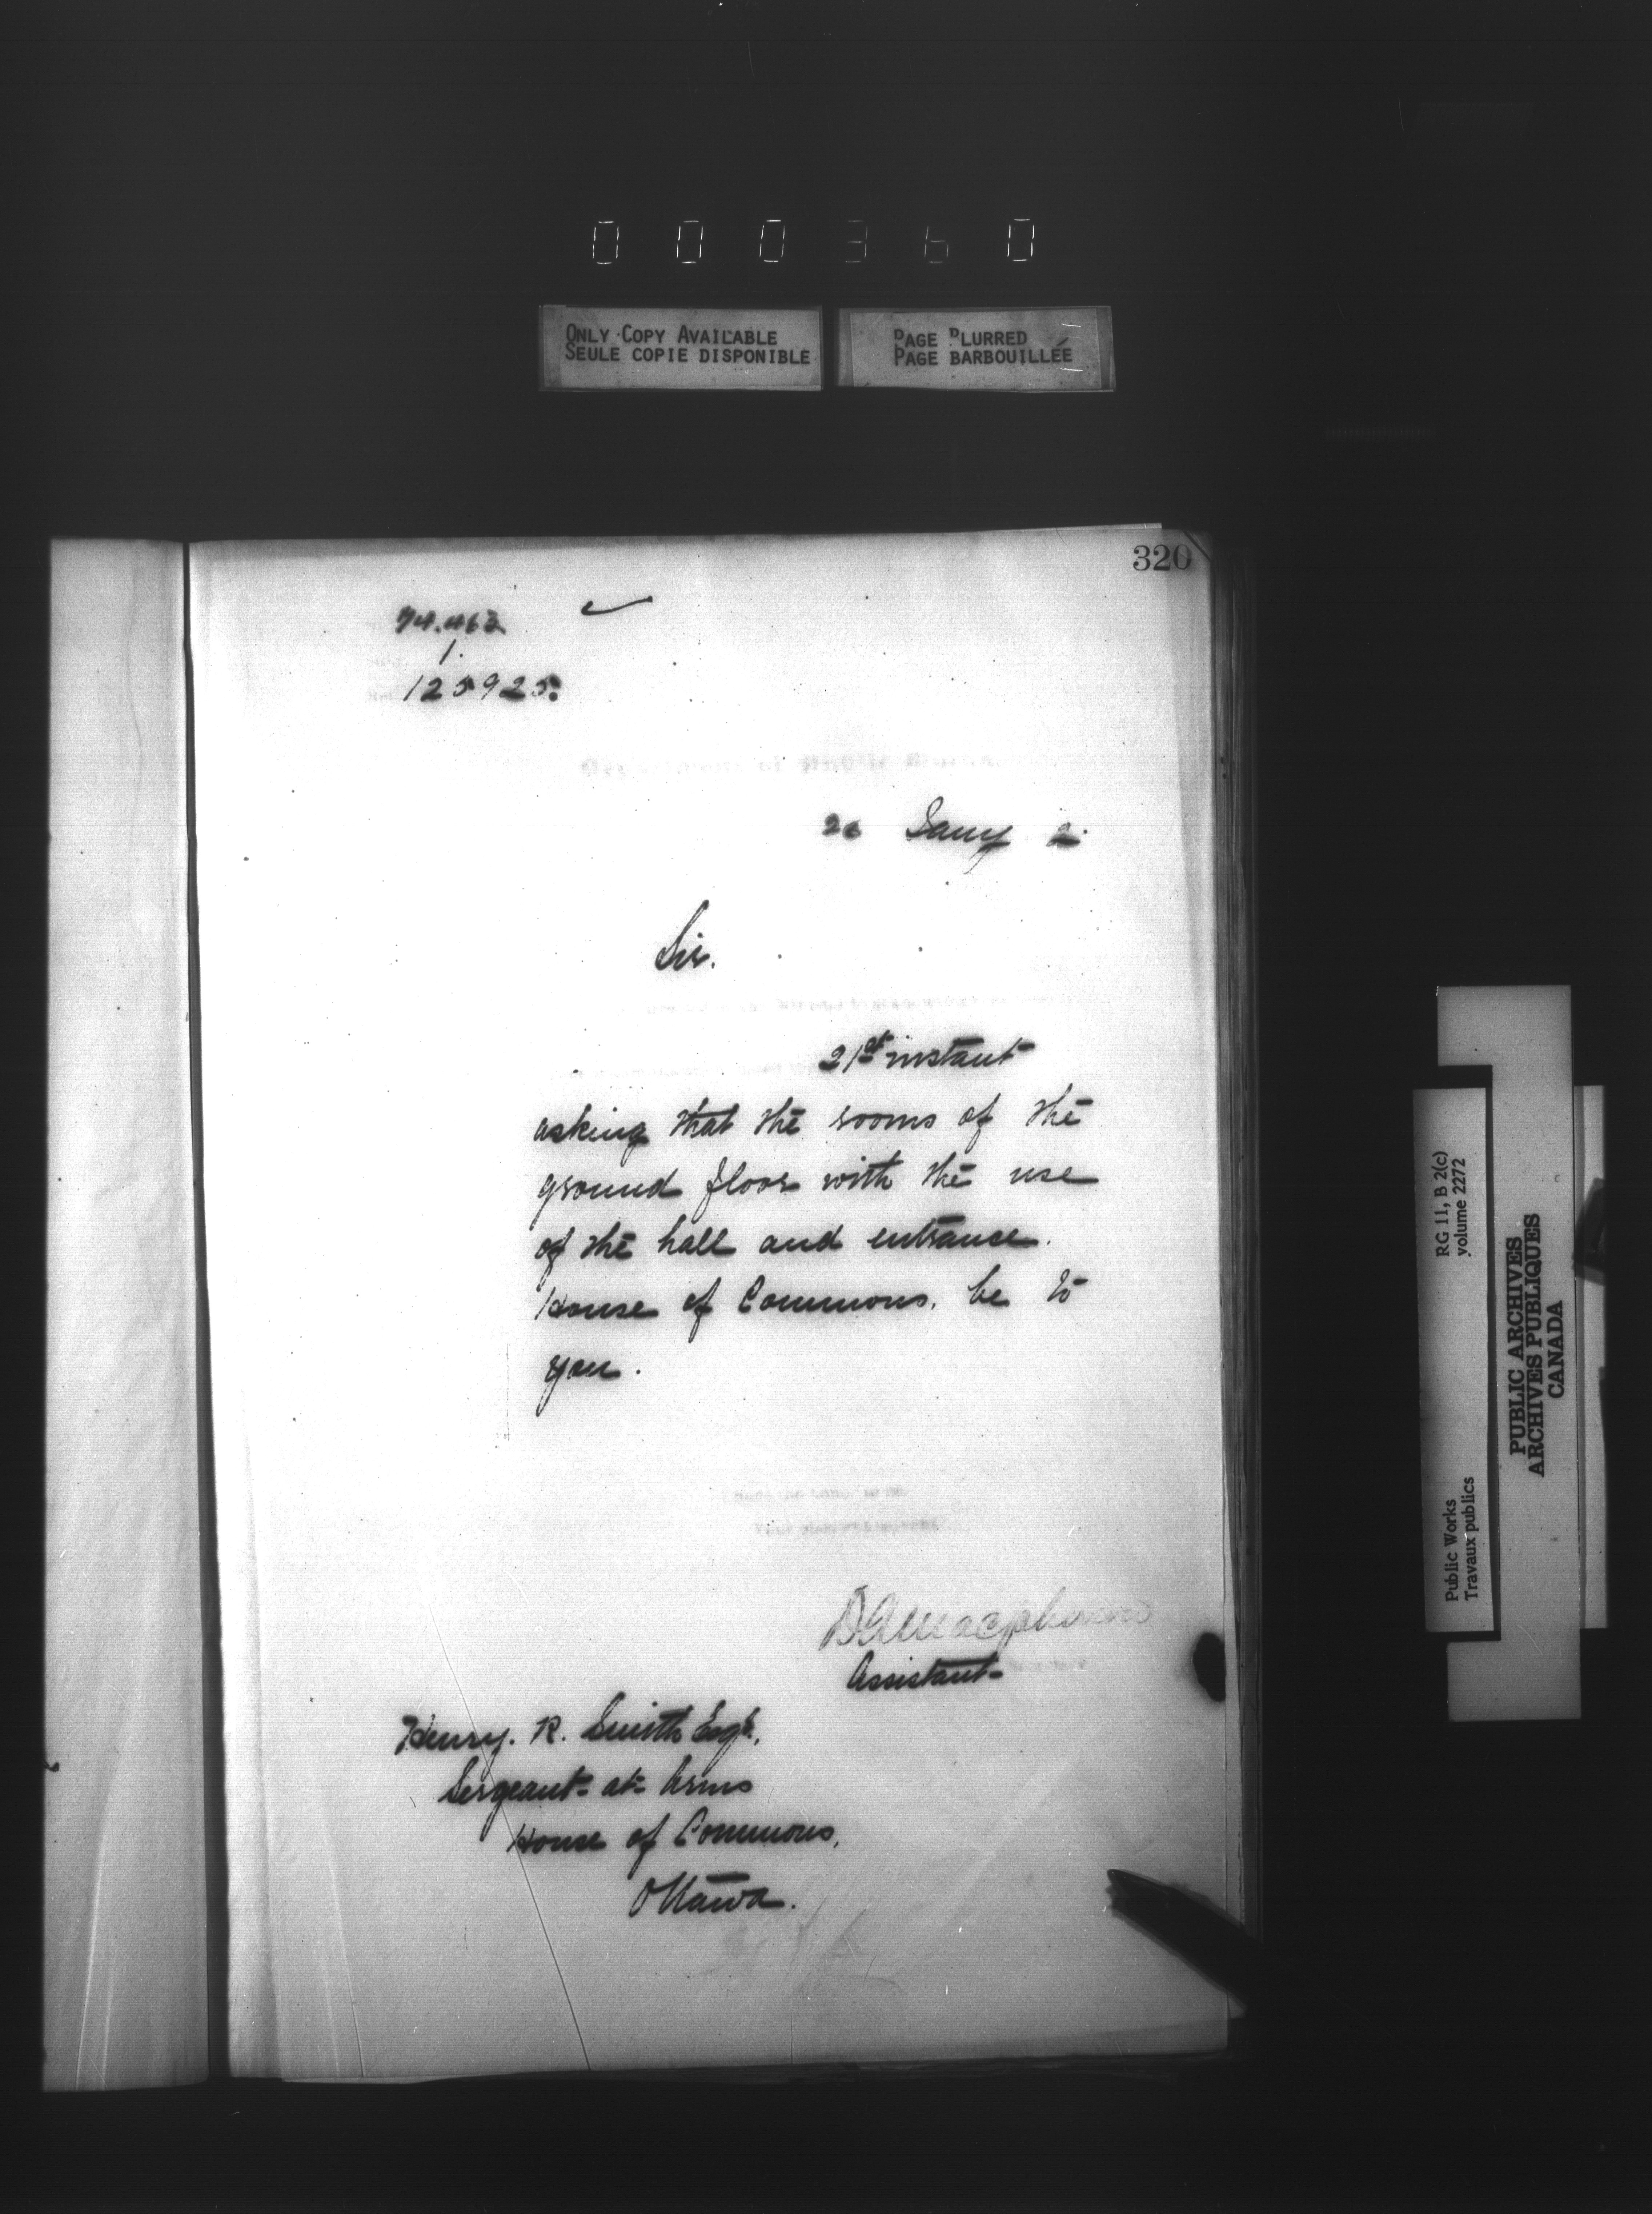 000360
ONLY COPY AVAILABLE
SEULE COPIE DISPONIBLE
PAGE BLURRED
PAGE BARBOUILLÉE
320
74.462
1.
125925.
26 Jany 2.
Sir.
21st instant
asking that the rooms of the
ground floor with the use
of the hall and entrance.
House of Commons. be to
you.
Assistant
Henry. R. Smith Esqr.
Sergeant-at-Arms
House of Commons.
Ottawa.
RG 11, B 2(c)
volume 2272
Public Works
Travaux publics
PUBLIC ARCHIVES
ARCHIVES PUBLIQUES
CANADA